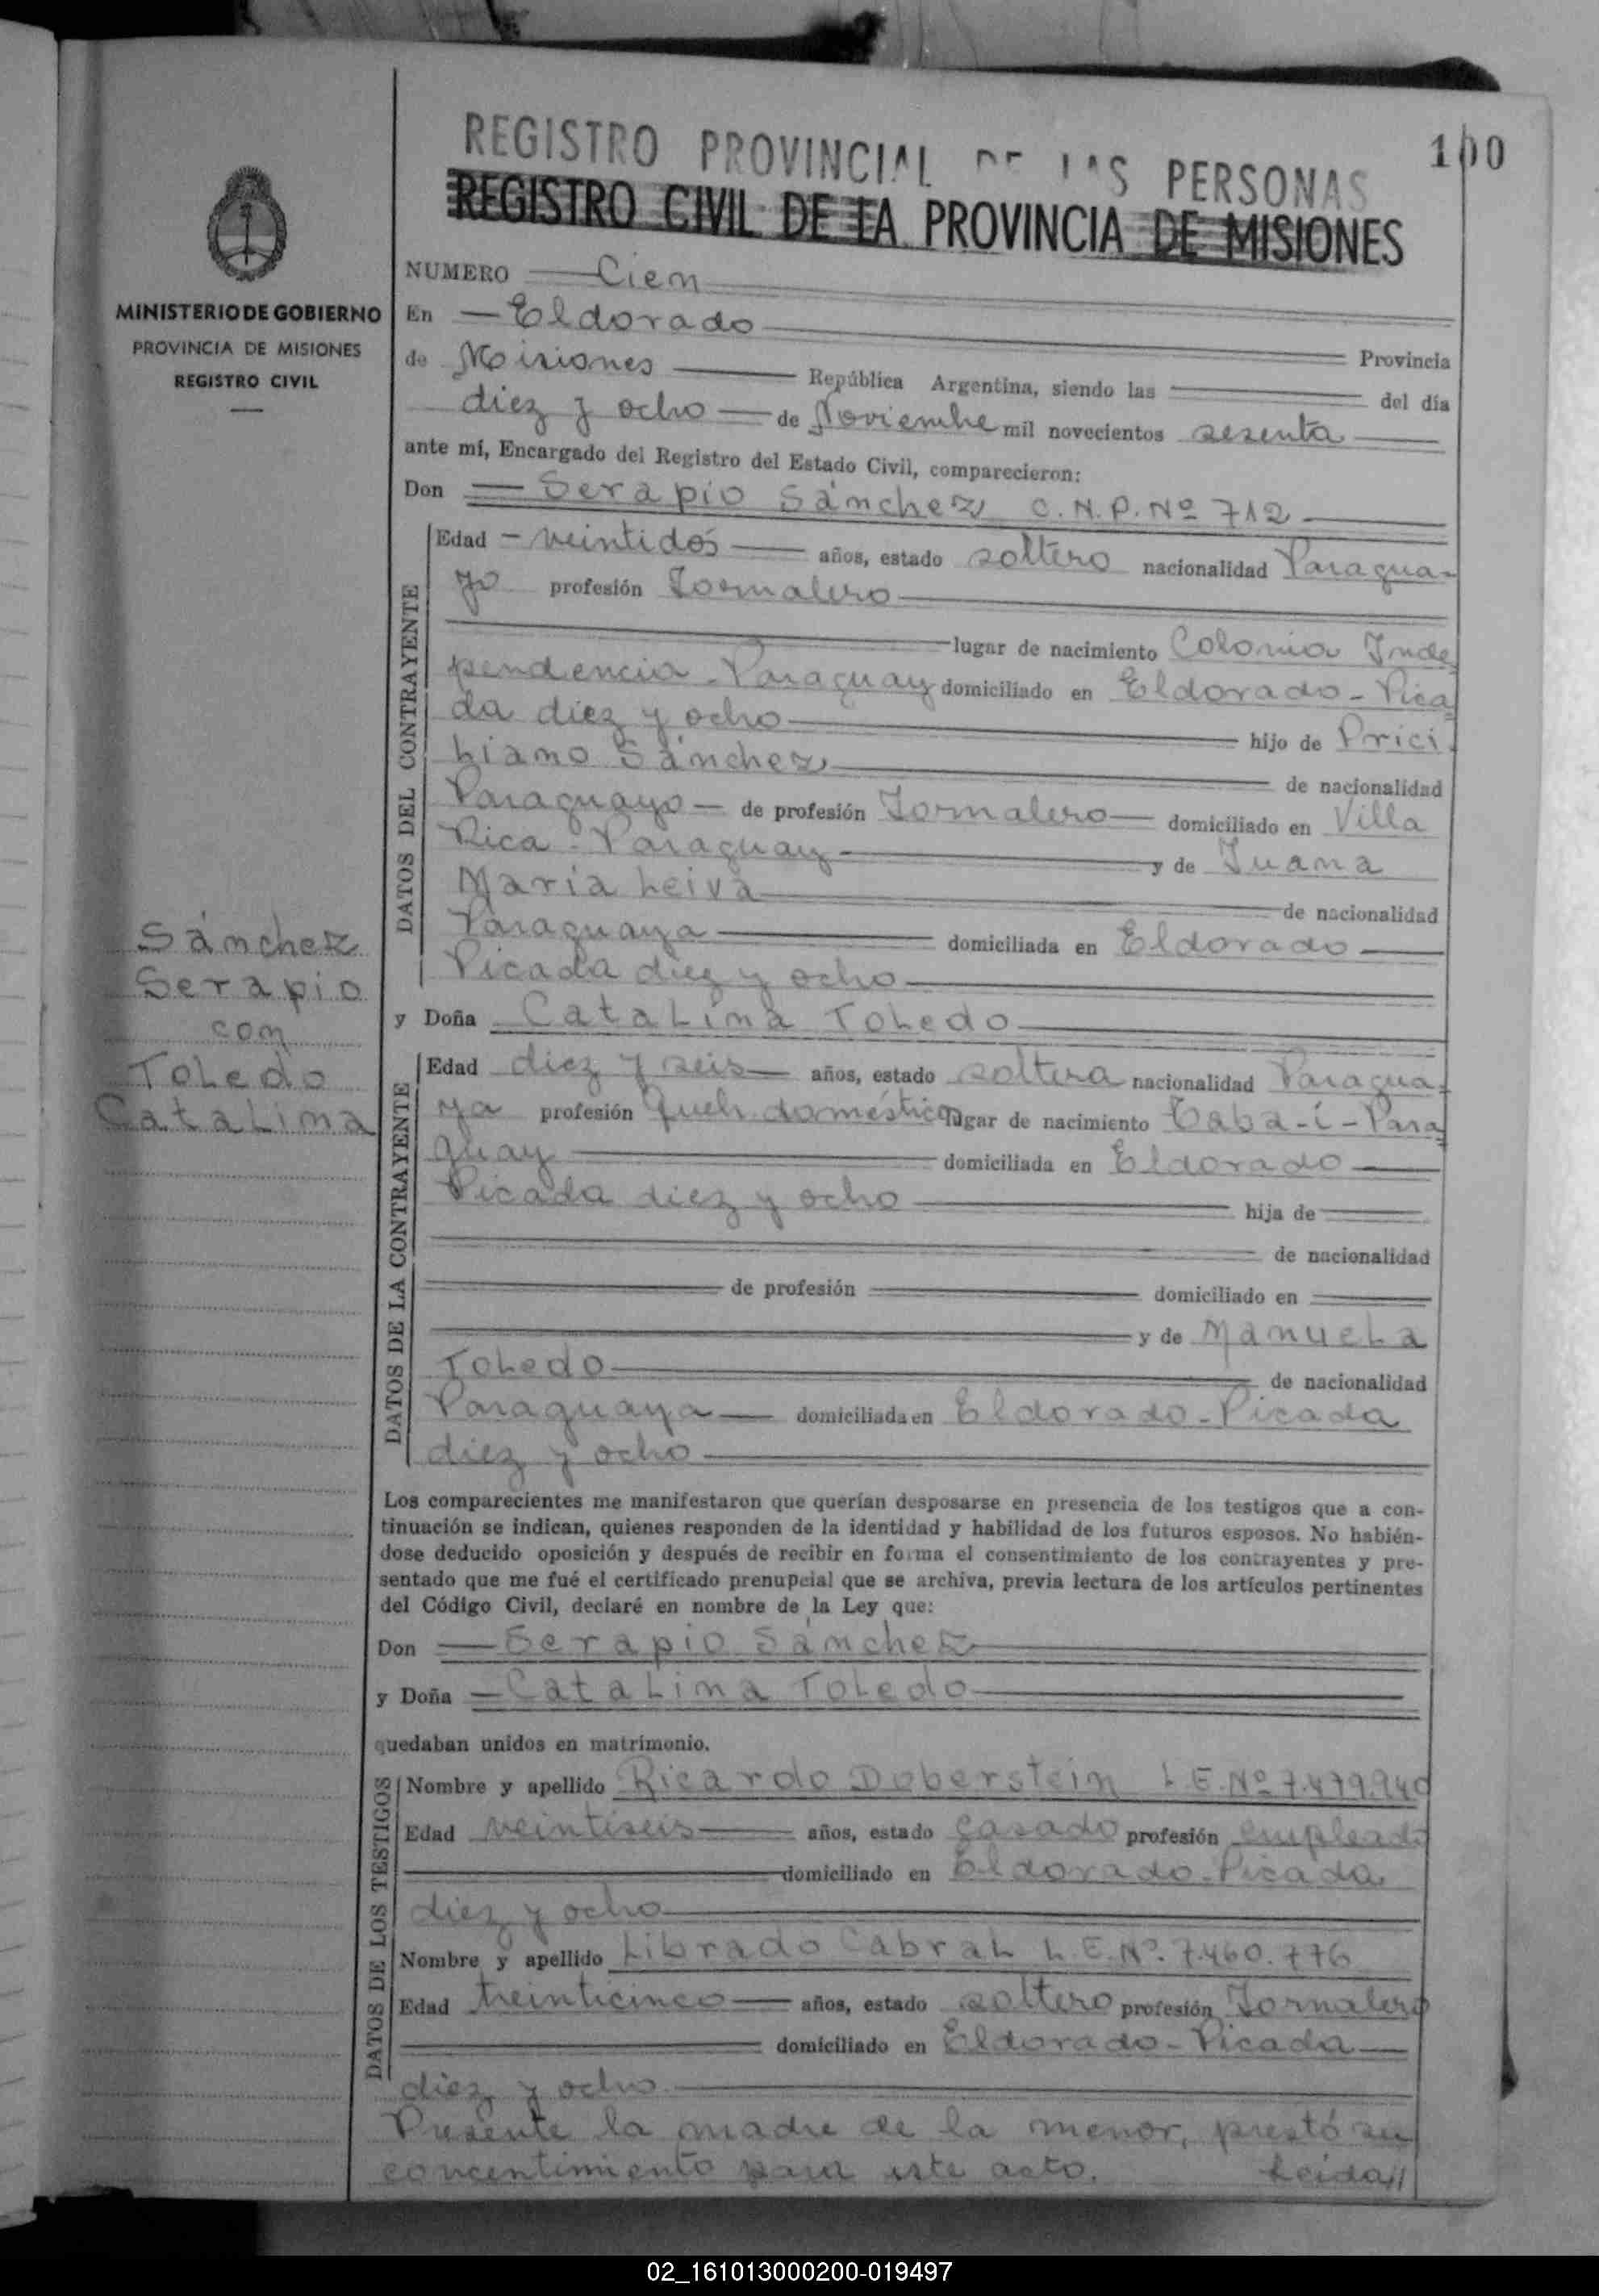 REGISTRO PROVINCIAL DE LAS PERSONAS
100
REGISTRO CIVIL DE LA PROVINCIA DE MISIONES
MINISTERIO DE GOBIERNO
PROVINCIA DE MISIONES
REGISTRO CIVIL
NUMERO Cien
En Eldorado Provincia
de Misiones República Argentina, siendo las del día
diez y ocho de Noviembre mil novecientos sesenta
ante mí, Encargado del Registro del Estado Civil, comparecieron:
Don Serapio Sánchez C.N.P. Nº 712
DATOS DEL CONTRAYENTE
Edad veintidós años, estado soltero nacionalidad Paragua-
yo profesión Jornalero
lugar de nacimiento Colonia Inde
pendencia - Paraguay domiciliado en Eldorado - Pica
da diez y ocho hijo de Prici
Liano Sánchez de nacionalidad
Paraguayo de profesión Jornalero domiciliado en Villa
Rica - Paraguay y de Juana
María Leiva de nacionalidad
Paraguaya domiciliada en Eldorado
Picada diez y ocho
Sánchez
Serapio
con
Toledo
Catalina
y Doña Catalina Toledo
DATOS DE LA CONTRAYENTE
Edad diez y seis años, estado soltera nacionalidad Paragua-
ya profesión Queh. doméstico lugar de nacimiento Caba-í - Para
guay domiciliada en Eldorado
Picada diez y ocho hija de
de nacionalidad
de profesión domiciliado en
y de Manuela
Toledo de nacionalidad
Paraguaya domiciliada en Eldorado - Picada
diez y ocho
Los comparecientes me manifestaron que querían desposarse en presencia de los testigos que a con-
tinuación se indican, quienes responden de la identidad y habilidad de los futuros esposos. No habién-
dose deducido oposición y después de recibir en forma el consentimiento de los contrayentes y pre-
sentado que me fué el certificado prenupcial que se archiva, previa lectura de los artículos pertinentes
del Código Civil, declaré en nombre de la Ley que:
Don Serapio Sánchez
y Doña Catalina Toledo
quedaban unidos en matrimonio.
DATOS DE LOS TESTIGOS
Nombre y apellido Ricardo Doberstein L.E. Nº 7.479.940
Edad veintiseis años, estado casado profesión empleado
domiciliado en Eldorado - Picada
diez y ocho
Nombre y apellido Librado Cabral L.E. Nº. 7.460.776
Edad treinticinco años, estado soltero profesión Jornalero
domiciliado en Eldorado - Picada
diez y ocho
Presente la madre de la menor, prestó su
concentimiento para este acto. Leida//
02_161013000200-019497